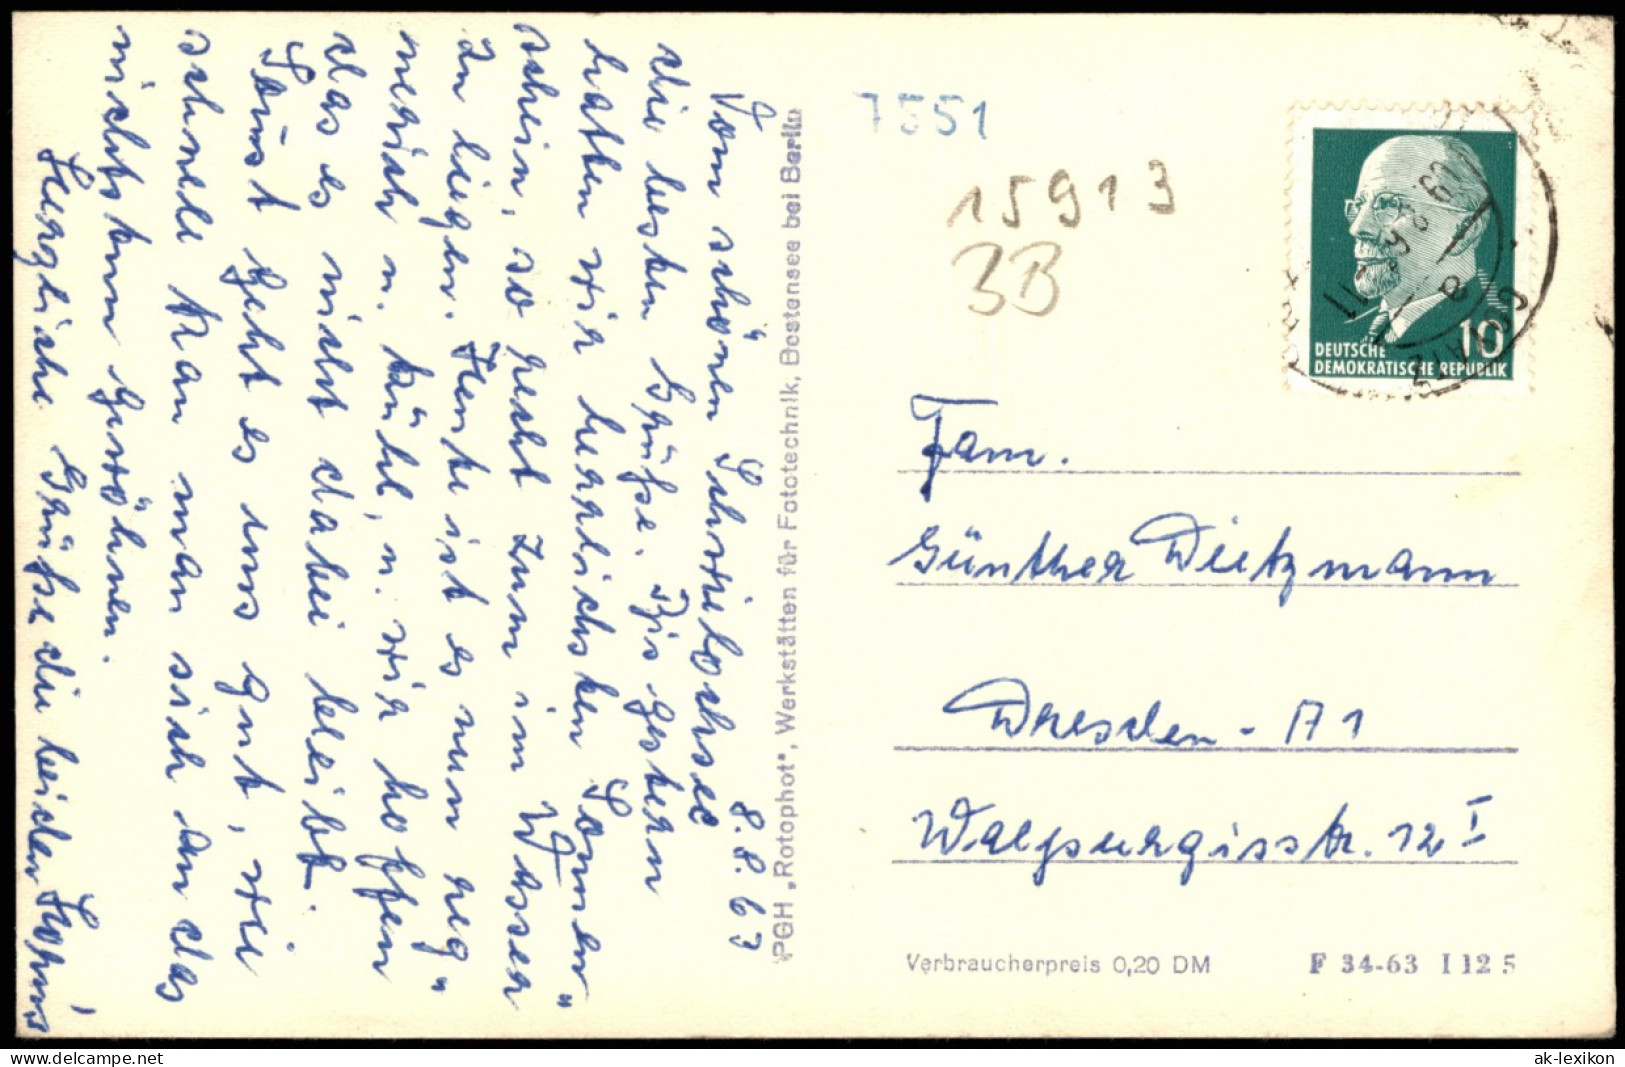 8.8.63
Vom schönen Schwielochsee
die besten Grüße. Bis gestern
hatten wir herrlichsten Sonnen„
schein, so recht zum im Wasser
zu liegen. Heute ist es nun reg„
nerich u. kühl, u. wir hoffen
das es nicht dabei bleibt.
Sonst geht es uns gut, wie
schnell kan man sich an das
nichtstun gewöhnen.
Herzliche Grüße die beiden
PGH „Rotophot", Werkstätten für Fototechnik, Bestensee bei Berlin
7551
15913
3B
10
DEUTSCHE
DEMOKRATISCHE REPUBLIK
Fam.
Günther Dietzmann
Dresden-A1
Walpurgisstr. 12 I
Verbraucherpreis 0,20 DM
F 34-63 I 12 5
delcampe.net
ak-lexikon